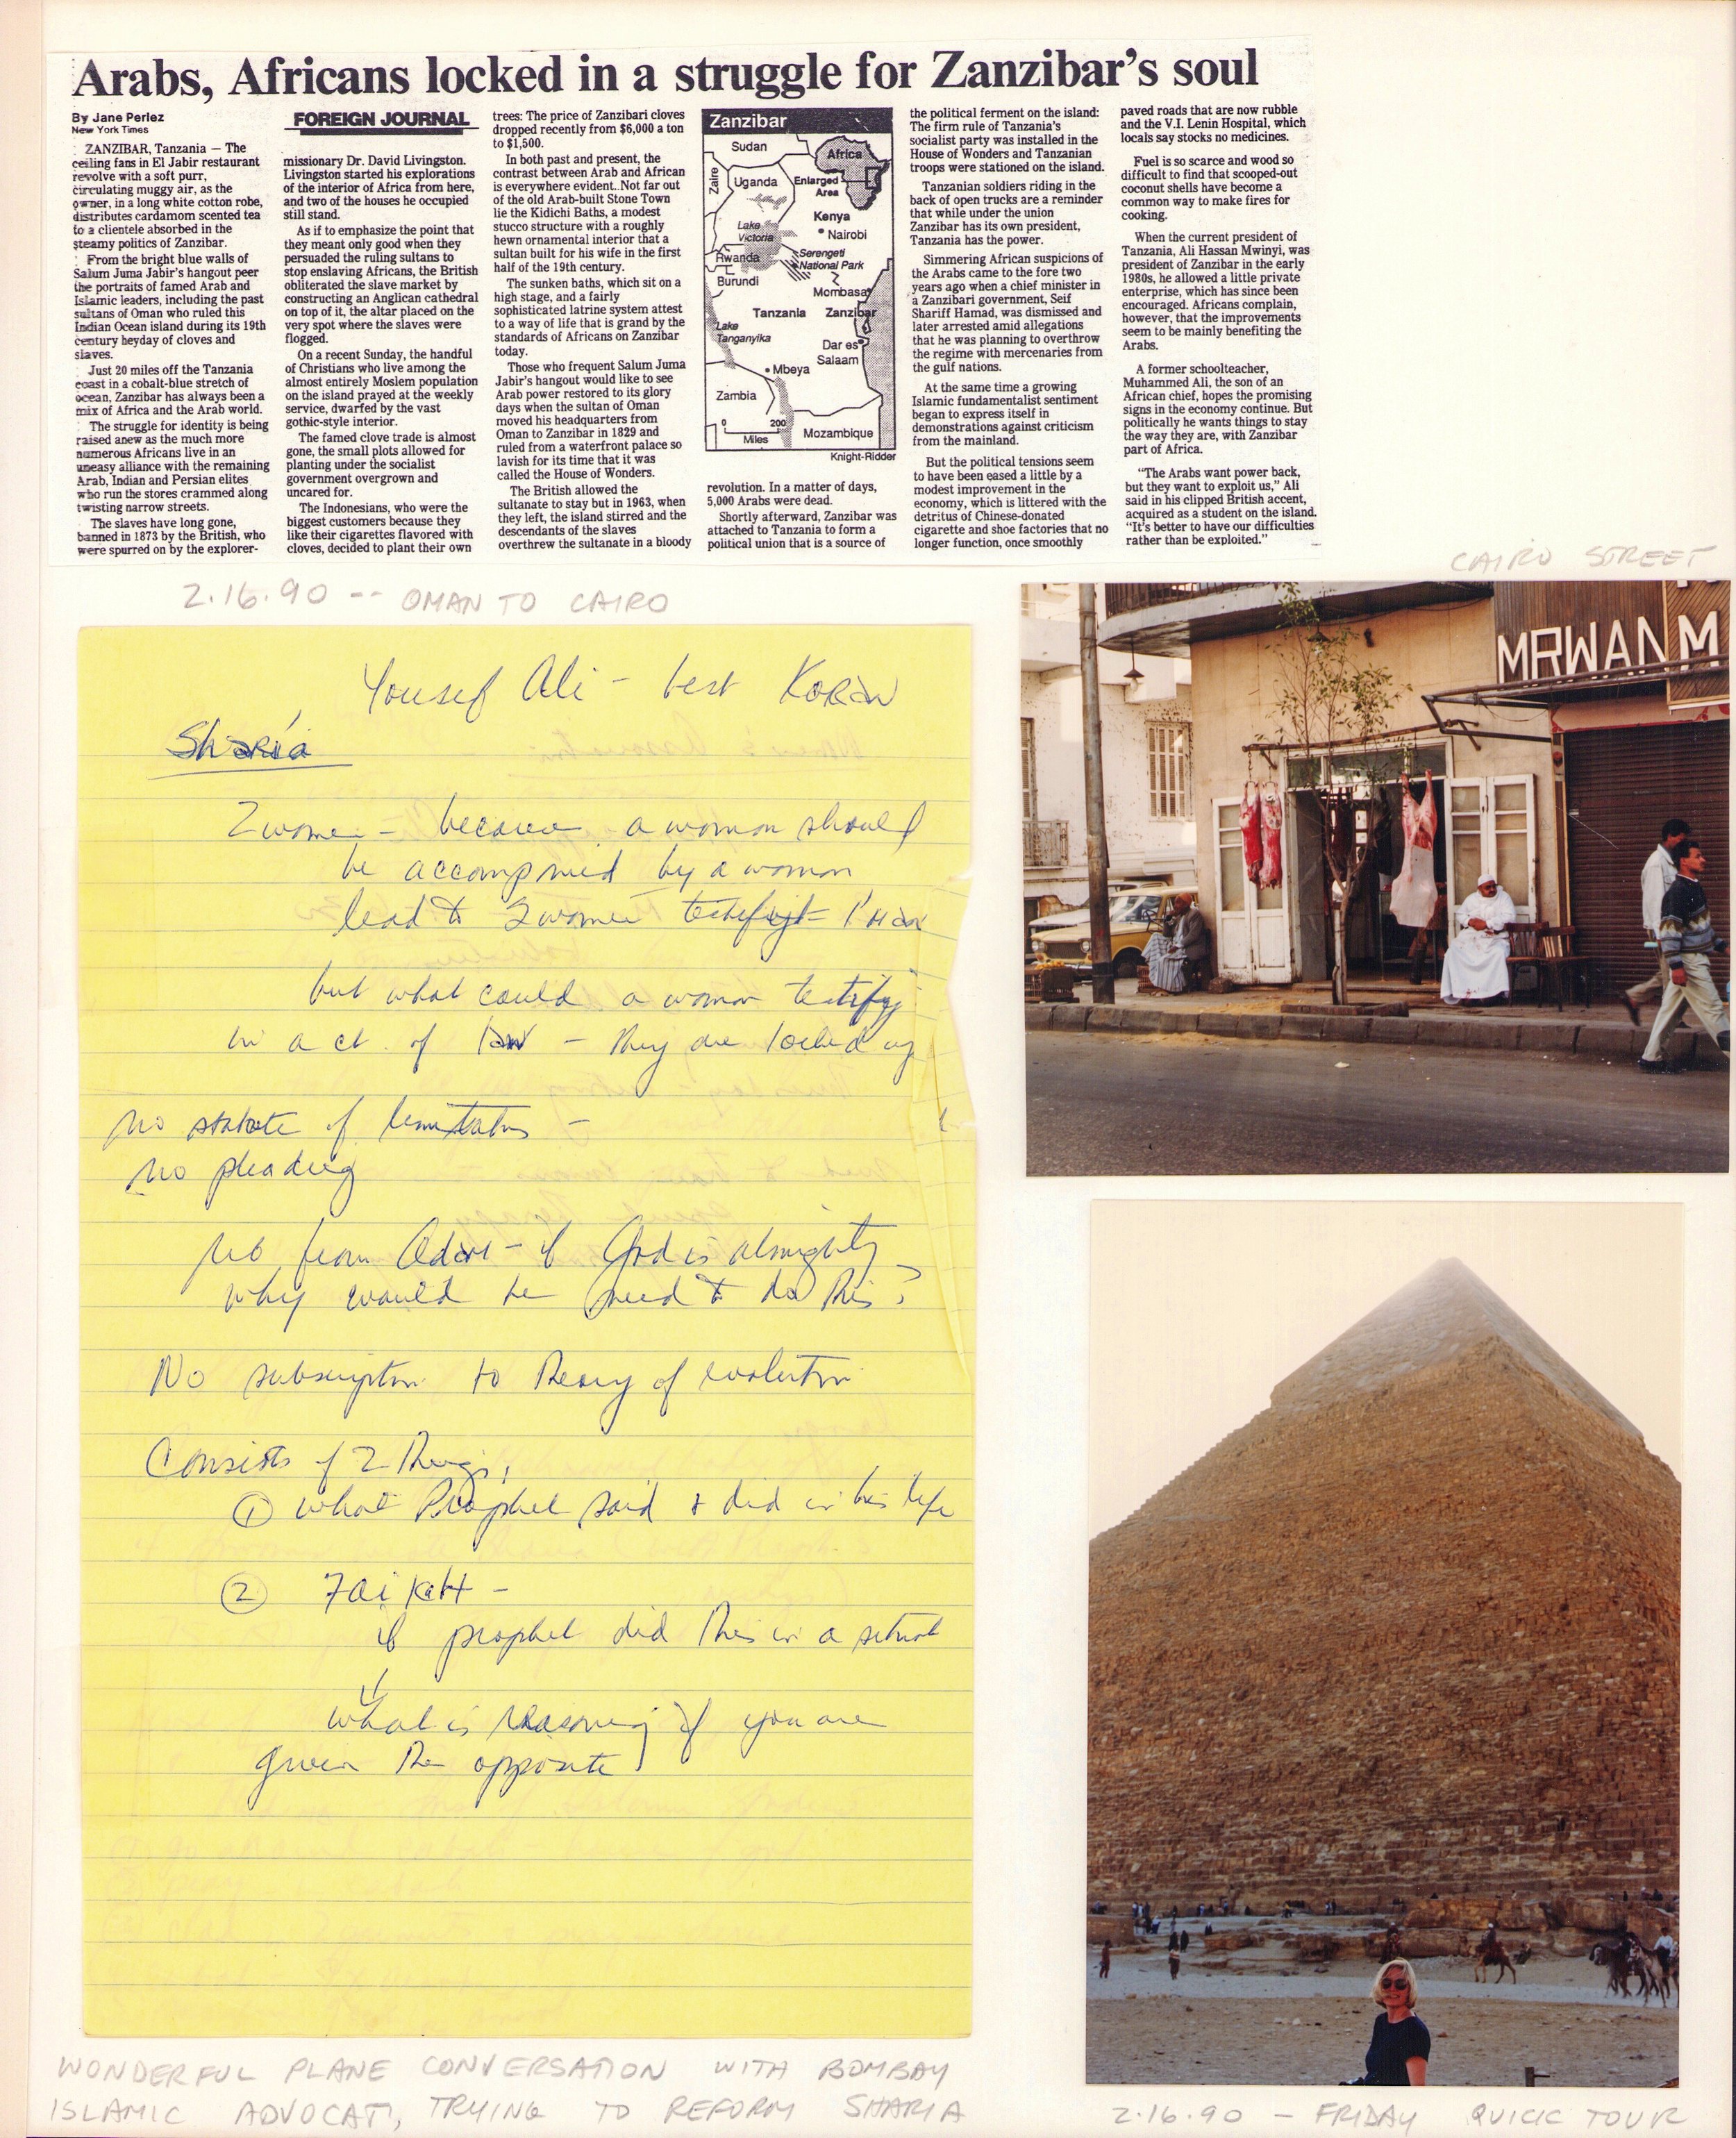 Arabs, Africans locked in a struggle for Zanzibar's soul
By Jane Perlez
New York Times
ZANZIBAR, Tanzania — The
ceiling fans in El Jabir restaurant
revolve with a soft purr,
circulating muggy air, as the
owner, in a long white cotton robe,
distributes cardamom scented tea
to a clientele absorbed in the
steamy politics of Zanzibar.
From the bright blue walls of
Salum Juma Jabir's hangout peer
the portraits of famed Arab and
Islamic leaders, including the past
sultans of Oman who ruled this
Indian Ocean island during its 19th
century heyday of cloves and
slaves.
Just 20 miles off the Tanzania
coast in a cobalt-blue stretch of
ocean, Zanzibar has always been a
mix of Africa and the Arab world.
The struggle for identity is being
raised anew as the much more
numerous Africans live in an
uneasy alliance with the remaining
Arab, Indian and Persian elites
who run the stores crammed along
twisting narrow streets.
The slaves have long gone,
banned in 1873 by the British, who
were spurred on by the explorer-
FOREIGN JOURNAL
missionary Dr. David Livingston.
Livingston started his explorations
of the interior of Africa from here,
and two of the houses he occupied
still stand.
As if to emphasize the point that
they meant only good when they
persuaded the ruling sultans to
stop enslaving Africans, the British
obliterated the slave market by
constructing an Anglican cathedral
on top of it, the altar placed on the
very spot where the slaves were
flogged.
On a recent Sunday, the handful
of Christians who live among the
almost entirely Moslem population
on the island prayed at the weekly
service, dwarfed by the vast
gothic-style interior.
The famed clove trade is almost
gone, the small plots allowed for
planting under the socialist
government overgrown and
uncared for.
The Indonesians, who were the
biggest customers because they
like their cigarettes flavored with
cloves, decided to plant their own
trees: The price of Zanzibari cloves
dropped recently from $6,000 a ton
to $1,500.
In both past and present, the
contrast between Arab and African
is everywhere evident. Not far out
of the old Arab-built Stone Town
lie the Kidichi Baths, a modest
stucco structure with a roughly
hewn ornamental interior that a
sultan built for his wife in the first
half of the 19th century.
The sunken baths, which sit on a
high stage, and a fairly
sophisticated latrine system attest
to a way of life that is grand by the
standards of Africans on Zanzibar
today.
Those who frequent Salum Juma
Jabir's hangout would like to see
Arab power restored to its glory
days when the sultan of Oman
moved his headquarters from
Oman to Zanzibar in 1829 and
ruled from a waterfront palace so
lavish for its time that it was
called the House of Wonders.
The British allowed the
sultanate to stay but in 1963, when
they left, the island stirred and the
descendants of the slaves
overthrew the sultanate in a bloody
Zanzibar
Sudan
Africa
Zaire
Uganda
Enlarged
Area
Kenya
Lake
Victoria
Nairobi
Rwanda
Serengeti
National Park
Burundi
Mombasa
Tanzania
Zanzibar
Lake
Tanganyika
Dar es
Salaam
Mbeya
Zambia
0 200
Miles
Mozambique
Knight-Ridder
revolution. In a matter of days,
5,000 Arabs were dead.
Shortly afterward, Zanzibar was
attached to Tanzania to form a
political union that is a source of
the political ferment on the island:
The firm rule of Tanzania's
socialist party was installed in the
House of Wonders and Tanzanian
troops were stationed on the island.
Tanzanian soldiers riding in the
back of open trucks are a reminder
that while under the union
Zanzibar has its own president,
Tanzania has the power.
Simmering African suspicions of
the Arabs came to the fore two
years ago when a chief minister in
a Zanzibari government, Seif
Shariff Hamad, was dismissed and
later arrested amid allegations
that he was planning to overthrow
the regime with mercenaries from
the gulf nations.
At the same time a growing
Islamic fundamentalist sentiment
began to express itself in
demonstrations against criticism
from the mainland.
But the political tensions seem
to have been eased a little by a
modest improvement in the
economy, which is littered with the
detritus of Chinese-donated
cigarette and shoe factories that no
longer function, once smoothly
paved roads that are now rubble
and the V.I. Lenin Hospital, which
locals say stocks no medicines.
Fuel is so scarce and wood so
difficult to find that scooped-out
coconut shells have become a
common way to make fires for
cooking.
When the current president of
Tanzania, Ali Hassan Mwinyi, was
president of Zanzibar in the early
1980s, he allowed a little private
enterprise, which has since been
encouraged. Africans complain,
however, that the improvements
seem to be mainly benefiting the
Arabs.
A former schoolteacher,
Muhammed Ali, the son of an
African chief, hopes the promising
signs in the economy continue. But
politically he wants things to stay
the way they are, with Zanzibar
part of Africa.
"The Arabs want power back,
but they want to exploit us," Ali
said in his clipped British accent,
acquired as a student on the island.
"It's better to have our difficulties
rather than be exploited."
CAIRO STREET
2.16.90 -- OMAN TO CAIRO
Yousef Ali - best Koran
Sharia
2 women - because a woman should
be accompanied by a woman
lead to 2 women
but what could a woman testify
in a ct. of law - they are locked up
no statute of limitations -
no pleading
no from Adam - if God is almighty
why would he need to do this?
No subscription to theory of evolution
Consists of 2 things,
① what Prophet said & did in his life
②
if prophet did this in a
what is reasoning if you are
given the opposite
MRWAN M
WONDERFUL PLANE CONVERSATION WITH BOMBAY
ISLAMIC ADVOCAT, TRYING TO REFORM SHARIA
2.16.90 - FRIDAY QUICK TOUR